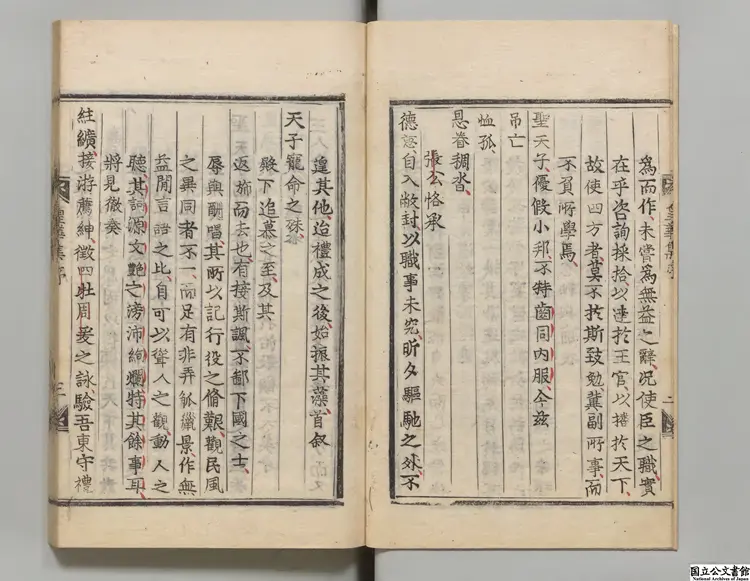 為而作、未嘗為無益之辭、况使臣之職、實
在乎咨詢採拾、以達於王官、以播於天下、
故使四方者、莫不於斯致勉、冀副所事、而
不負所學焉、
聖天子、優假小邦、不特齒同内服、今茲
吊亡
恤孤、
恳眷稠沓、
張公恪承
德意、自入敝封、以職事未完、昕夕驅馳之外、不
遑其他、迨禮成之後、始振其藻、首叙
天子寵命之殊、
殿下追慕之至、及其
返旆而去也、有接斯諷、不鄙下國之士、
辱與酬唱、其所以記行役之脩艱、觀民風
之異同者、不一而足、有非弄觚儷景、作無
益閒言語之比、自可以聳人之觀、動人之
聽、其詞源文艶之滂沛絢爛、特其餘事耳、
將見徹奏
紸纊、接游薦紳、徵四牡周爰之詠、驗吾東守禮
皇華集序
二
皇華集序
三
国立公文書館
National Archives of Japan